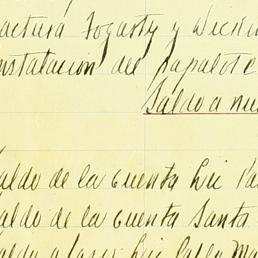 factura Fogarty y Dickin
nstalacion del papalote
Saldo a nu
aldo de la cuenta Lic Pa
aldo de la cuenta Santa
aldo a favor Lic Pablo Ma